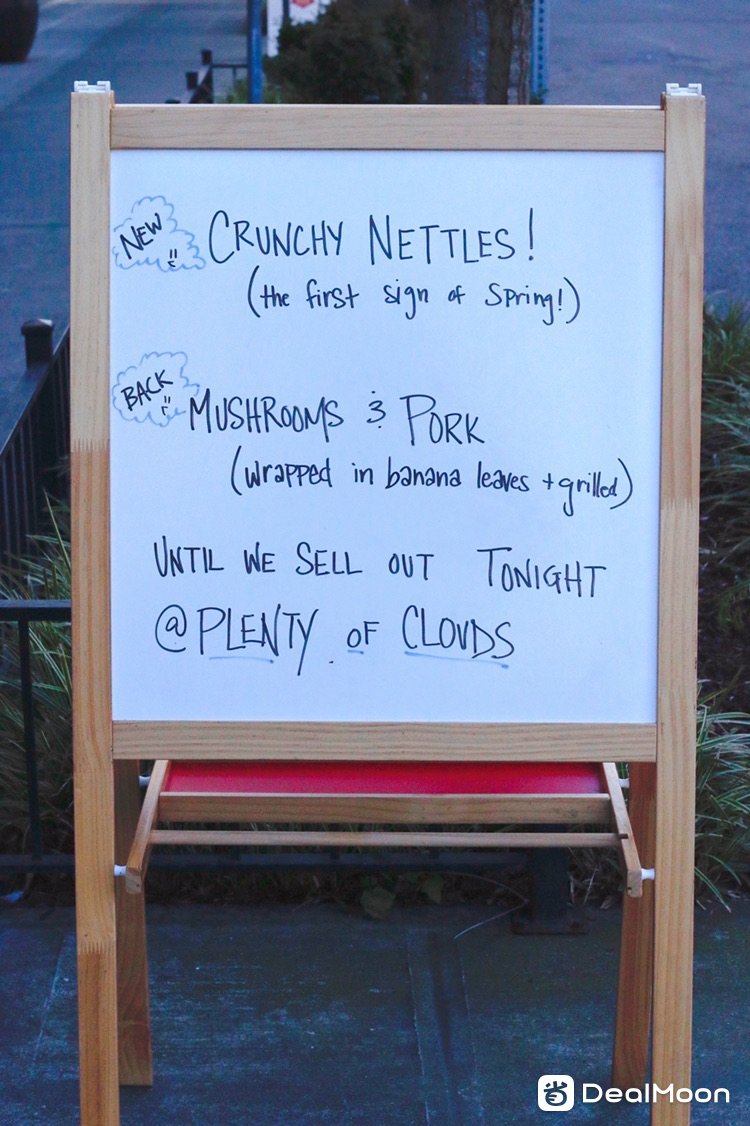 NEW
CRUNCHY NETTLES!
(the first sign of spring!)
BACK
MUSHROOMS & PORK
(wrapped in banana leaves + grilled)
UNTIL WE SELL OUT TONIGHT
@ PLENTY OF CLOUDS
DealMoon